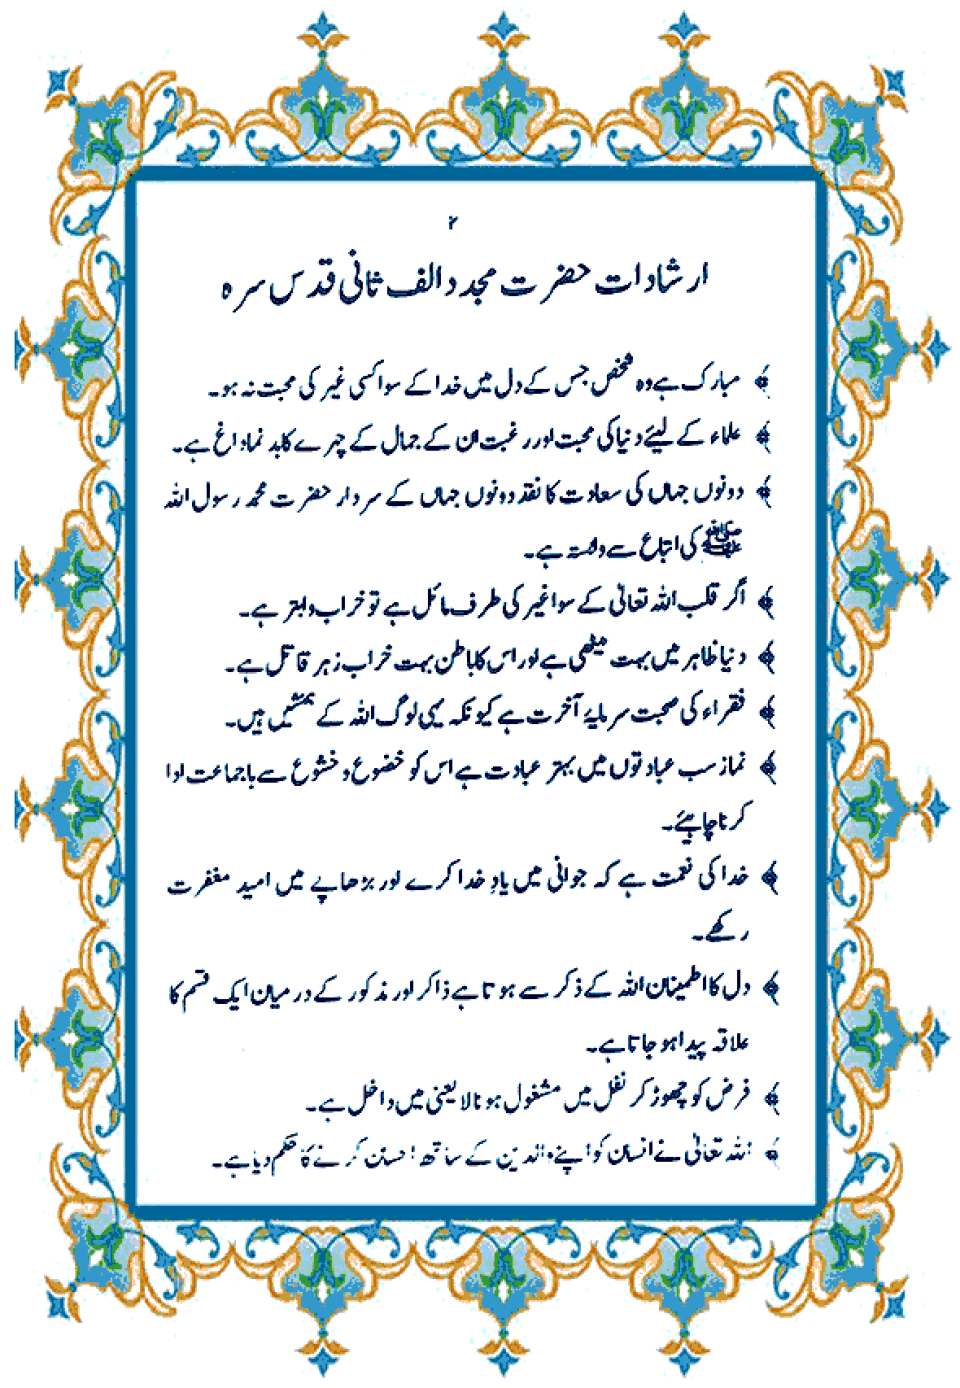 ۲
ارشادات حضرت مجدد الف ثانی قدس سرہ
﴾ مبارک ہے وہ شخص جس کے دل میں خدا کے سوا کسی غیر کی محبت نہ ہو۔
﴾ علماء کے لیئے دنیا کی محبت اور رغبت ان کے جمال کے چہرے کا بد نما داغ ہے۔
﴾ دونوں جہاں کی سعادت کا نقد دونوں جہاں کے سردار حضرت محمد رسول اللہ
ﷺ کی اتباع سے وابستہ ہے۔
﴾ اگر قلب اللہ تعالیٰ کے سوا غیر کی طرف مائل ہے تو خراب و ابتر ہے۔
﴾ دنیا ظاہر میں بہت میٹھی ہے اور اس کا باطن بہت خراب زہر قاتل ہے۔
﴾ فقراء کی صحبت سرمایۂ آخرت ہے کیونکہ یہی لوگ اللہ کے ہمنشیں ہیں۔
﴾ نماز سب عبادتوں میں بہتر عبادت ہے اس کو خضوع و خشوع سے باجماعت ادا
کرنا چاہیئے۔
﴾ خدا کی نعمت ہے کہ جوانی میں یادِ خدا کرے اور بڑھاپے میں امید مغفرت
رکھے۔
﴾ دل کا اطمینان اللہ کے ذکر سے ہوتا ہے ذاکر اور مذکور کے درمیان ایک قسم کا
علاقہ پیدا ہو جاتا ہے۔
﴾ فرض کو چھوڑ کر نفل میں مشغول ہونا لا یعنی میں داخل ہے۔
﴾ اللہ تعالیٰ نے انسان کو اپنے والدین کے ساتھ احسان کرنے کا حکم دیا ہے۔